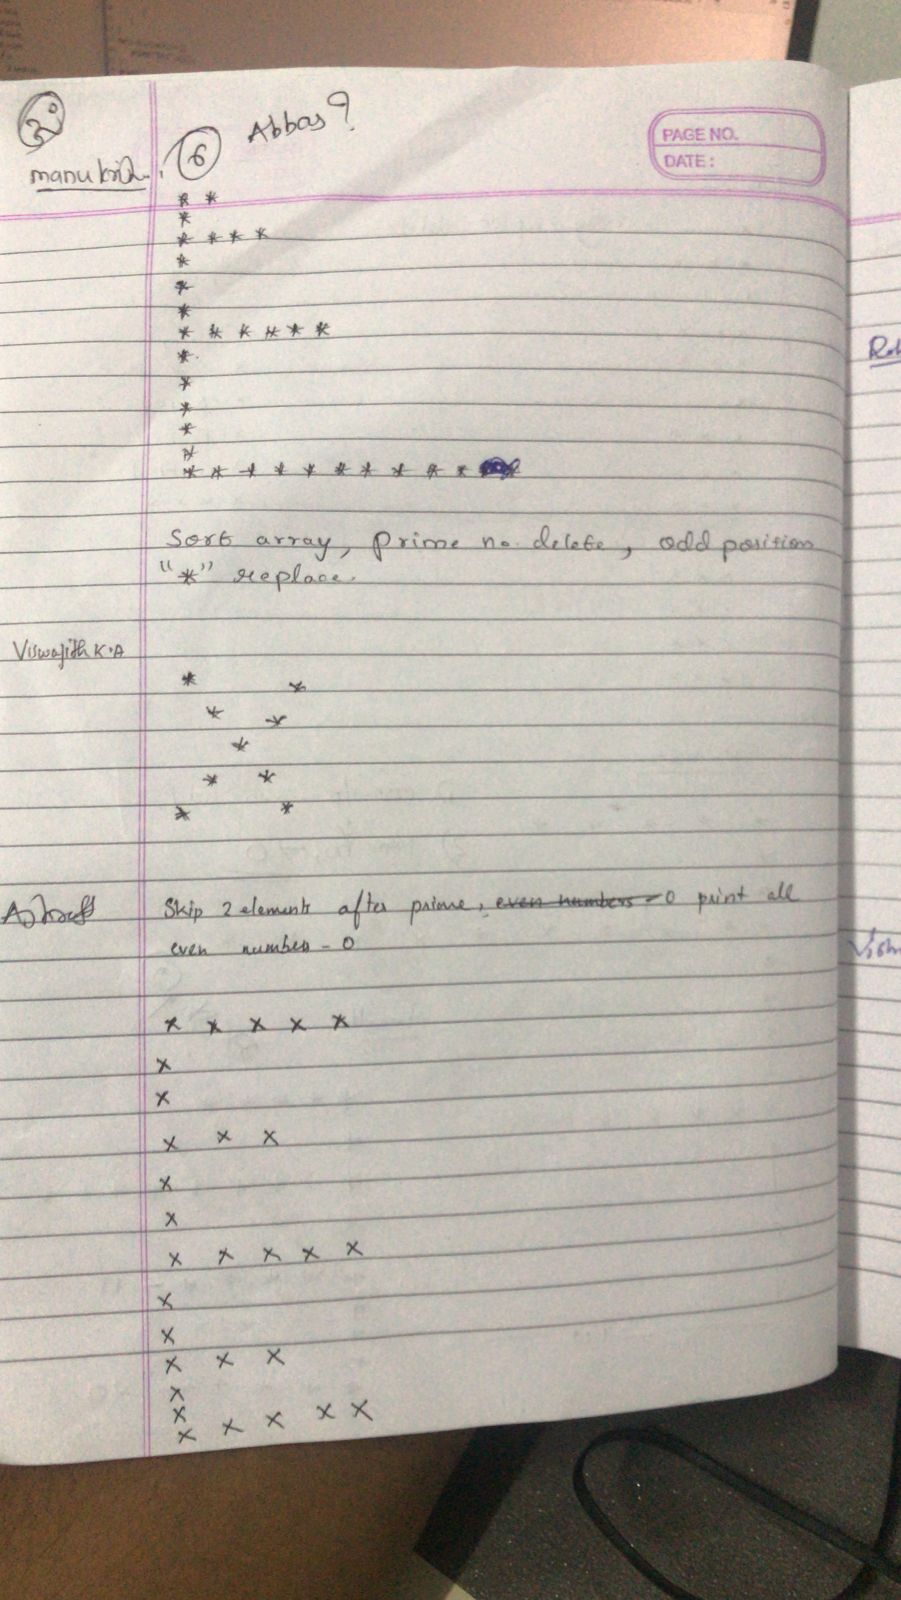 Abbas ?
6
PAGE NO.
DATE :
* *
*
* * * *
*
*
*
* * * * * *
*
*
*
*
*
* * * * * * * * * *
Sort array, prime no. delete, odd position
"*" replace.
Viswajith K.A
* *
* *
*
* *
* *
Skip 2 elements after prime, even numbers - 0 print all
even number - 0
x x x x x
x
x
x x x
x
x
x x x x x
x
x
x x x
x
x
x x x x x